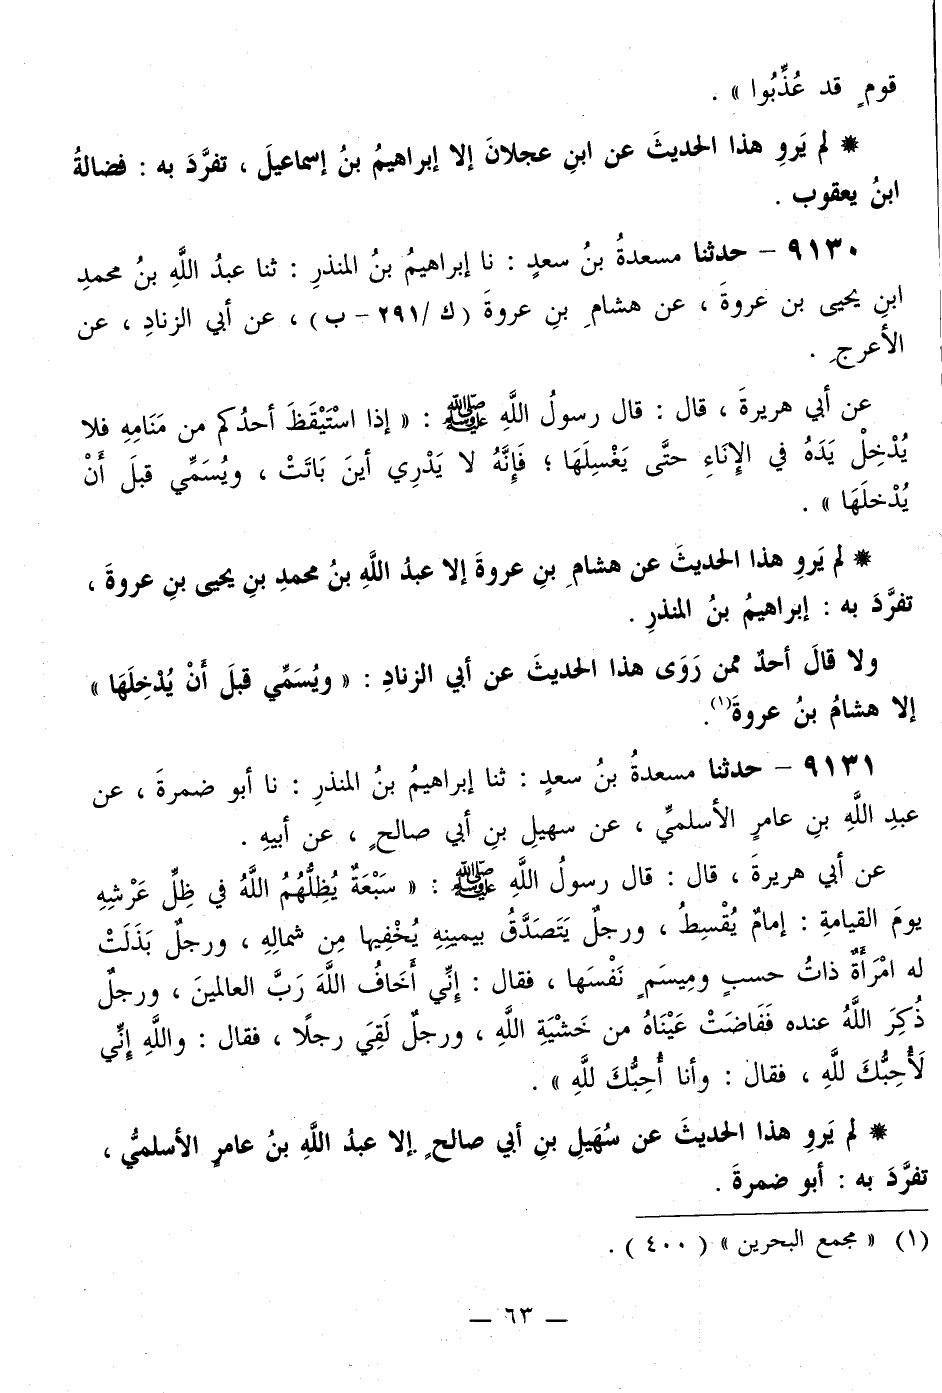 قومٍ قد عُذِّبُوا » .
* لم يَروِ هذا الحديثَ عن ابنِ عجلانَ إلا إبراهيمُ بنُ إسماعيلَ ، تفرَّدَ به : فضالةُ
ابنُ يعقوب .
٩١٣٠ – حدثنا مسعدةُ بنُ سعدٍ : نا إبراهيمُ بنُ المنذرِ : ثنا عبدُ اللَّهِ بنُ محمدِ
ابنِ يحيى بن عروةَ ، عن هشامِ بنِ عروةَ (ك /٢٩١ – ب) ، عن أبي الزنادِ ، عن
الأعرجِ .
عن أبي هريرةَ ، قال : قال رسولُ اللَّهِ ﷺ : « إذا اسْتَيْقَظَ أحدُكم من مَنَامِهِ فلا
يُدْخِلْ يَدَهُ في الإِنَاءِ حتَّى يَغْسِلَهَا ؛ فَإِنَّهُ لا يَدْرِي أينَ بَاتَتْ ، ويُسَمِّي قبلَ أَنْ
يُدْخلَهَا » .
* لم يَروِ هذا الحديثَ عن هشامِ بنِ عروةَ إلا عبدُ اللَّهِ بنُ محمدِ بنِ يحيى بنِ عروةَ ،
تفرَّدَ به : إبراهيمُ بنُ المنذرِ .
ولا قالَ أحدٌ ممن رَوَى هذا الحديثَ عن أبي الزنادِ : « ويُسَمِّي قبلَ أَنْ يُدْخِلَهَا »
إلا هشامُ بنُ عروةَ(١).
٩١٣١ – حدثنا مسعدةُ بنُ سعدٍ : ثنا إبراهيمُ بنُ المنذرِ : نا أبو ضمرةَ ، عن
عبدِ اللَّهِ بنِ عامرٍ الأسلميِّ ، عن سهيلِ بنِ أبي صالحٍ ، عن أبيهِ .
عن أبي هريرةَ ، قال : قال رسولُ اللَّهِ ﷺ : « سَبْعَةٌ يُظِلُّهُمُ اللَّهُ في ظِلِّ عَرْشِهِ
يومَ القيامةِ : إمامٌ يُقْسِطُ ، ورجلٌ يَتَصَدَّقُ بيمينِهِ يُخْفِيها مِن شمالِهِ ، ورجلٌ بَذَلَتْ
له امْرَأَةٌ ذاتُ حسبٍ ومِيسَمٍ نَفْسَها ، فقال : إِنِّي أَخَافُ اللَّهَ رَبَّ العالمينَ ، ورجلٌ
ذُكِرَ اللَّهُ عنده فَفَاضَتْ عَيْنَاهُ من خَشْيَةِ اللَّهِ ، ورجلٌ لَقِيَ رجلًا ، فقال : واللَّهِ إِنِّي
لَأُحِبُّكَ للَّهِ ، فقال : وأنا أُحِبُّكَ للَّهِ » .
* لم يَروِ هذا الحديثَ عن سُهَيلِ بنِ أبي صالحٍ إلا عبدُ اللَّهِ بنُ عامرٍ الأسلميُّ ،
تفرَّدَ به : أبو ضمرةَ .
(١) « مجمع البحرين » ( ٤٠٠ ) .
— ٦٣ —